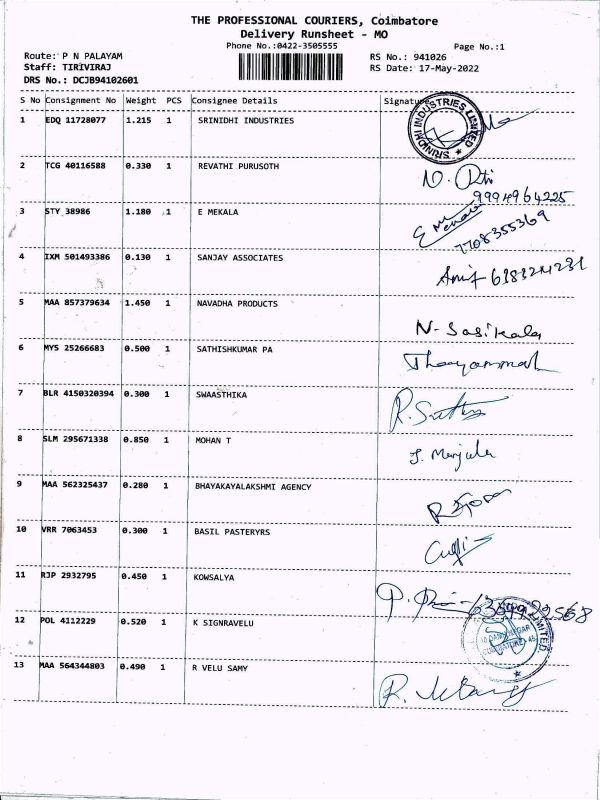 THE PROFESSIONAL COURIERS, Coimbatore
Delivery Runsheet - MO
Phone No.:0422-3505555 Page No.:1
Route: P N PALAYAM RS No.: 941026
Staff: TIRIVIRAJ RS Date: 17-May-2022
DRS No.: DCJB94102601
S No Consignment No Weight PCS Consignee Details Signature
1 EDQ 11728077 1.215 1 SRINIDHI INDUSTRIES
SRINIDHI INDUSTRIES LIMITED
2 TCG 40116588 0.330 1 REVATHI PURUSOTH
9994964225
3 STY 38986 1.180 1 E MEKALA
7708355369
4 IXM 501493386 0.130 1 SANJAY ASSOCIATES
5 MAA 857379634 1.450 1 NAVADHA PRODUCTS
N- Sasikala
6 MYS 25266683 0.500 1 SATHISHKUMAR PA
Thaayammal
7 BLR 4150320394 0.300 1 SWAASTHIKA
8 SLM 295671338 0.850 1 MOHAN T
J. Manjula
9 MAA 562325437 0.280 1 BHAYAKAYALAKSHMI AGENCY
10 VRR 7063453 0.300 1 BASIL PASTERYRS
11 RJP 2932795 0.450 1 KOWSALYA
12 POL 4112229 0.520 1 K SIGNRAVELU
LIMITED
13 MAA 564344803 0.490 1 R VELU SAMY